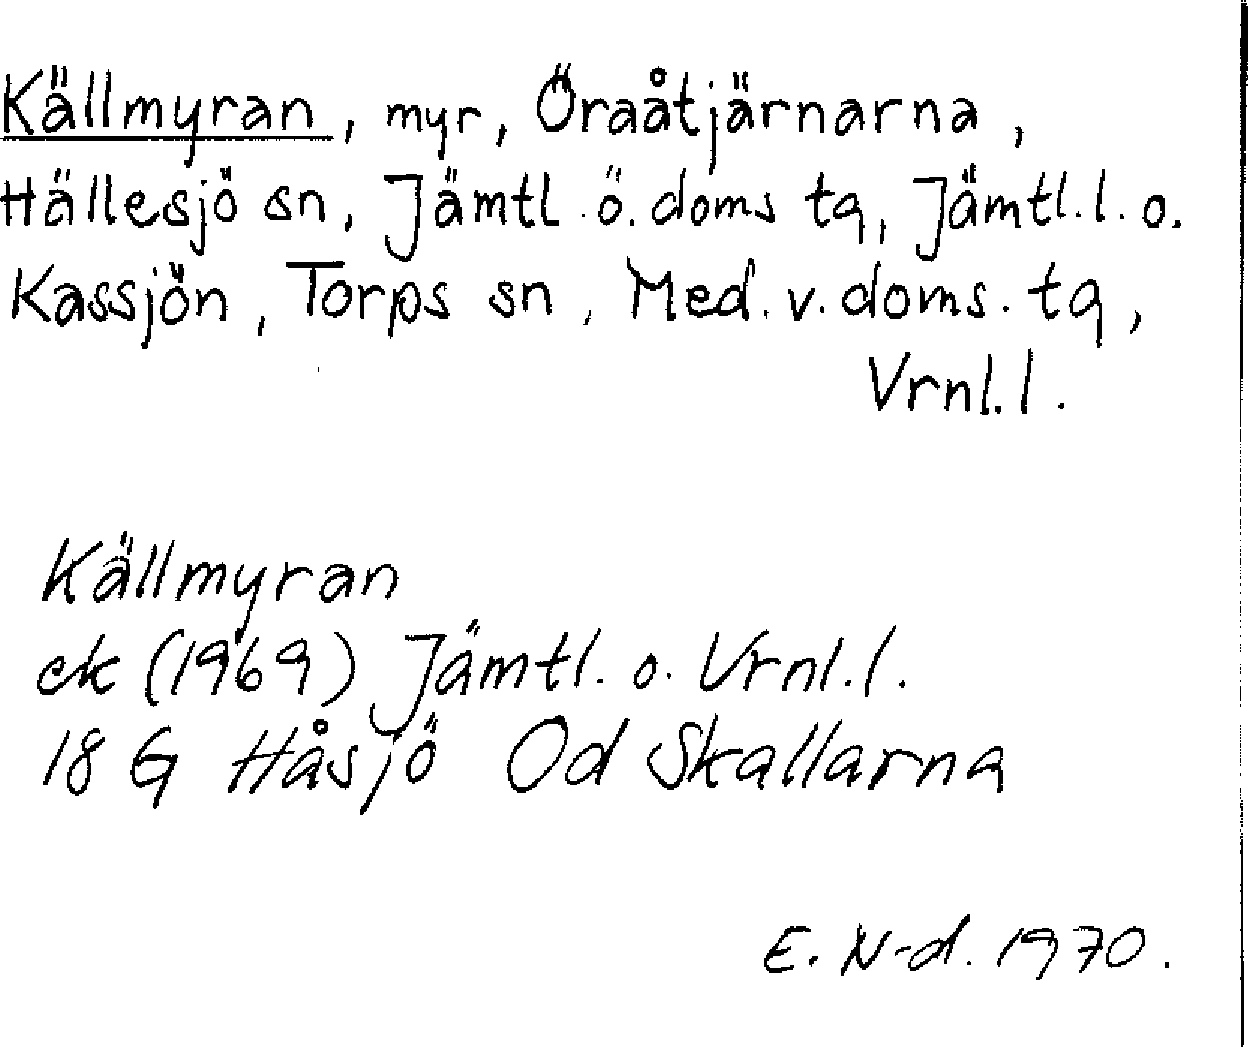 Källmyran, myr, Öraåtjärnarna,
Hällesjö sn, Jämtl. ö. doms tq, Jämtl. l. o.
Kassjön, Torps sn, Med. v. doms. tq,
Vrnl. l.
Källmyran
ek (1969) Jämtl. o. Vrnl. l.
18 G Håsjö Od Skallarna
E. N-d. 1970.